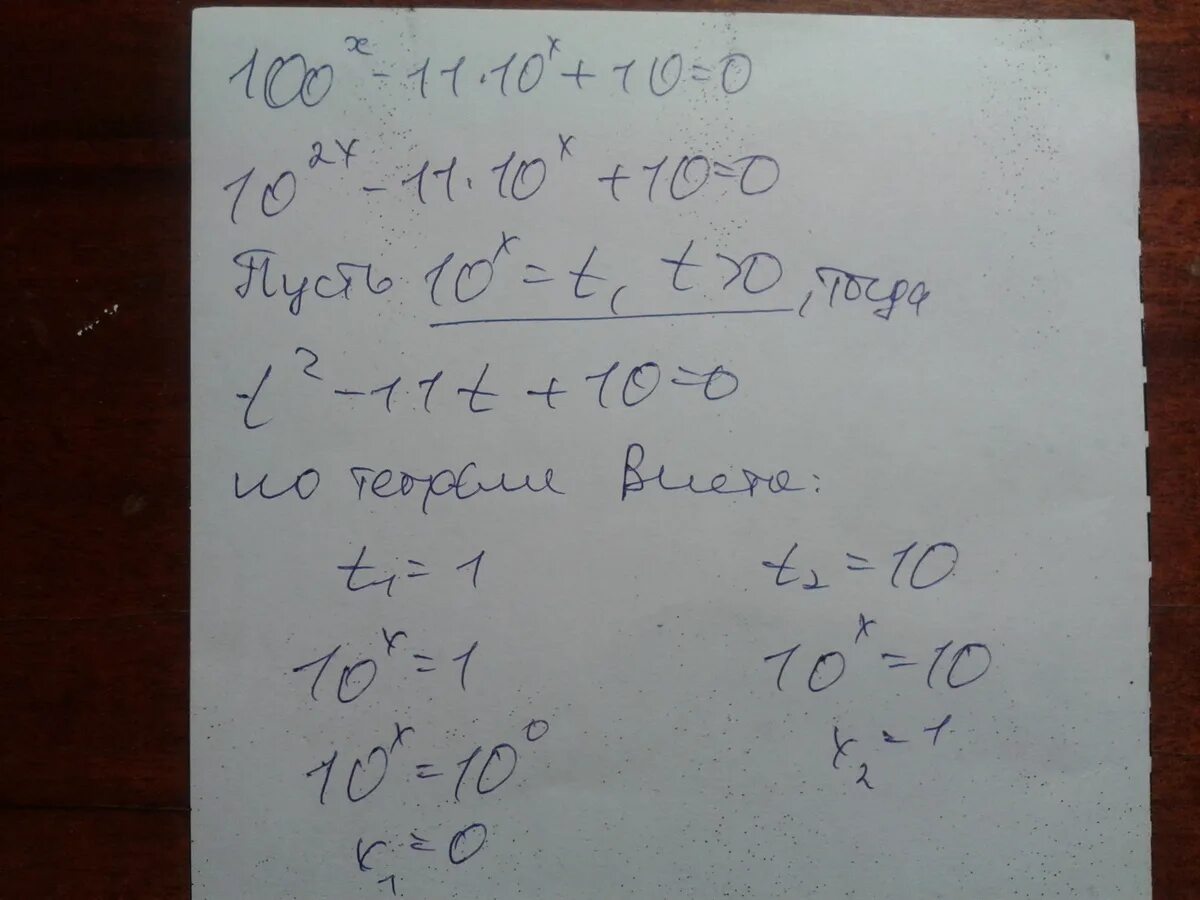 100ˣ - 11·10ˣ + 10 = 0
10²ˣ - 11·10ˣ + 10 = 0
Пусть 10ˣ = t, t > 0, тогда
t² - 11t + 10 = 0
по теореме Виета:
t₁ = 1 t₂ = 10
10ˣ = 1 10ˣ = 10
10ˣ = 10⁰ x₂ = 1
x₁ = 0